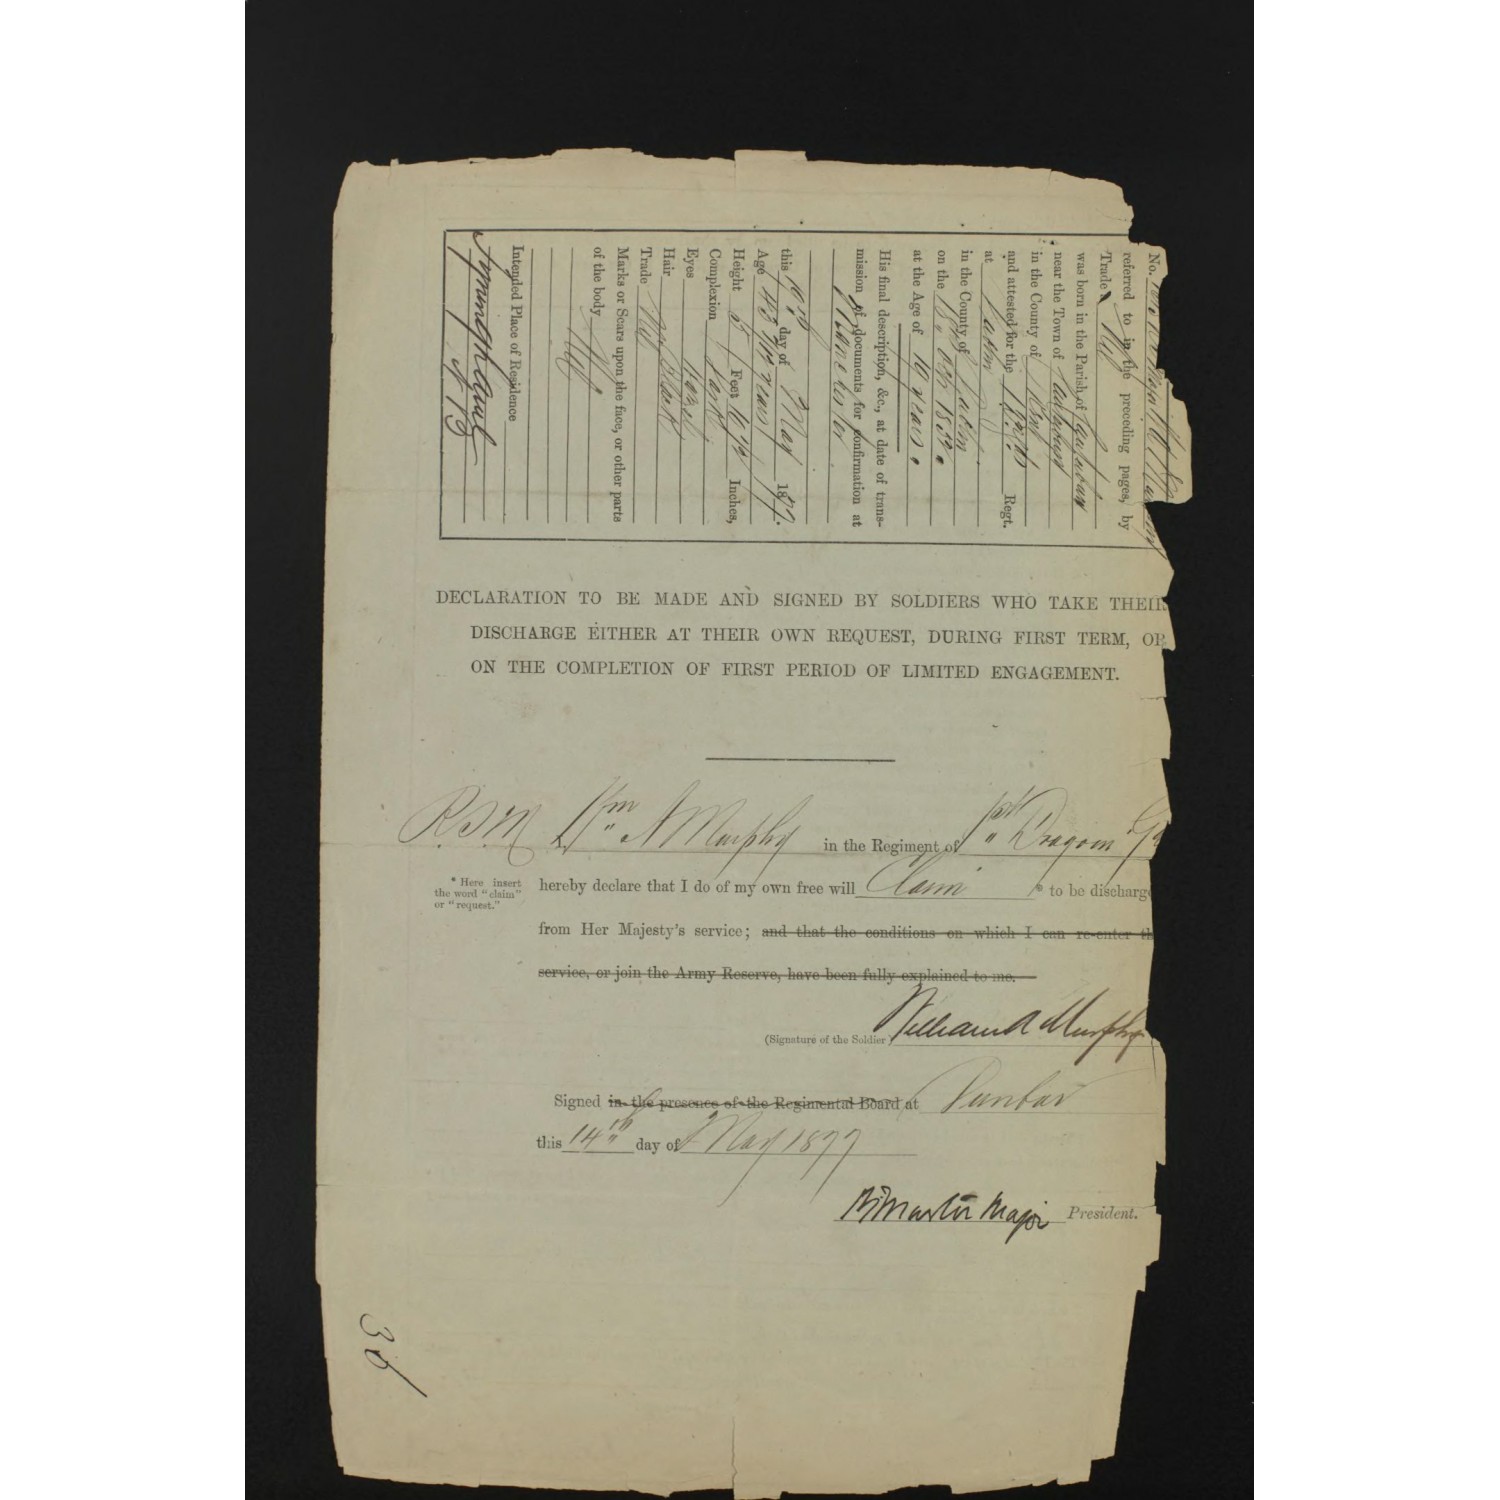 referred to in the preceding pages, by
Trade a Nil
was born in the Parish of
near the Town of
in the County of
and attested for the Regt.
at Dublin
in the County of Dublin
on the
at the Age of 10 years.
His final description, &c., at date of trans-
mission of documents for confirmation at
Manchester
this 19th day of May 1877.
Age
Height 5 Feet Inches,
Complexion Dark
Eyes Hazel
Hair
Trade Nil
Marks or Scars upon the face, or other parts
of the body Nil
Intended Place of Residence
N B
DECLARATION TO BE MADE AND SIGNED BY SOLDIERS WHO TAKE THEIR
DISCHARGE EITHER AT THEIR OWN REQUEST, DURING FIRST TERM, OR
ON THE COMPLETION OF FIRST PERIOD OF LIMITED ENGAGEMENT.
R.S.M Wm A Murphy in the Regiment of 1st Dragoon
hereby declare that I do of my own free will Claim * to be discharge
* Here insert
the word "claim"
or "request."
from Her Majesty's service; and that the conditions on which I can re-enter th
service, or join the Army Reserve, have been fully explained to me.
(Signature of the Soldier William A Murphy
Signed in the presence of the Regimental Board at Dunbar
this 14th day of May 1877
Major President.
36